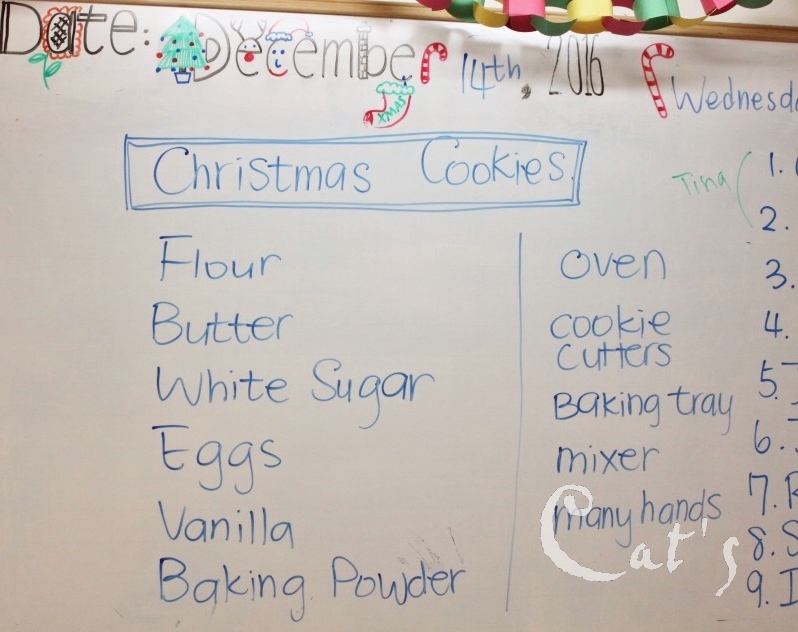 Date: December 14th, 2016 Wednesda
XMAS
Christmas Cookies
Flour
Butter
White Sugar
Eggs
Vanilla
Baking Powder
oven
cookie
cutters
Baking tray
mixer
many hands
Tina
1.
2.
3.
4.
5.
6.
7. R
8. S
9. I
Cat's